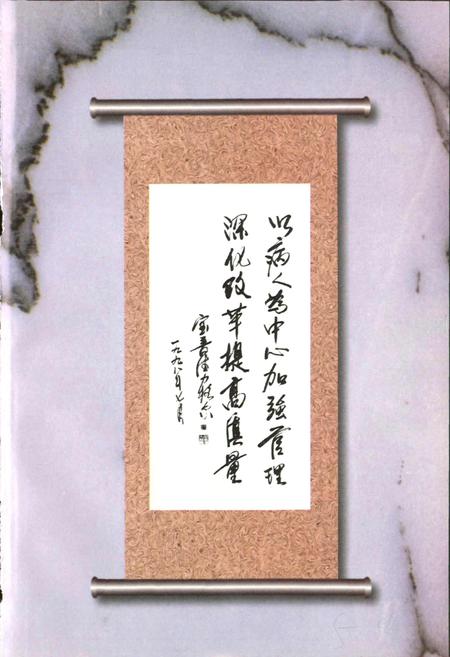 以病人為中心加強管理
深化改革提高质量
一九九八年七月